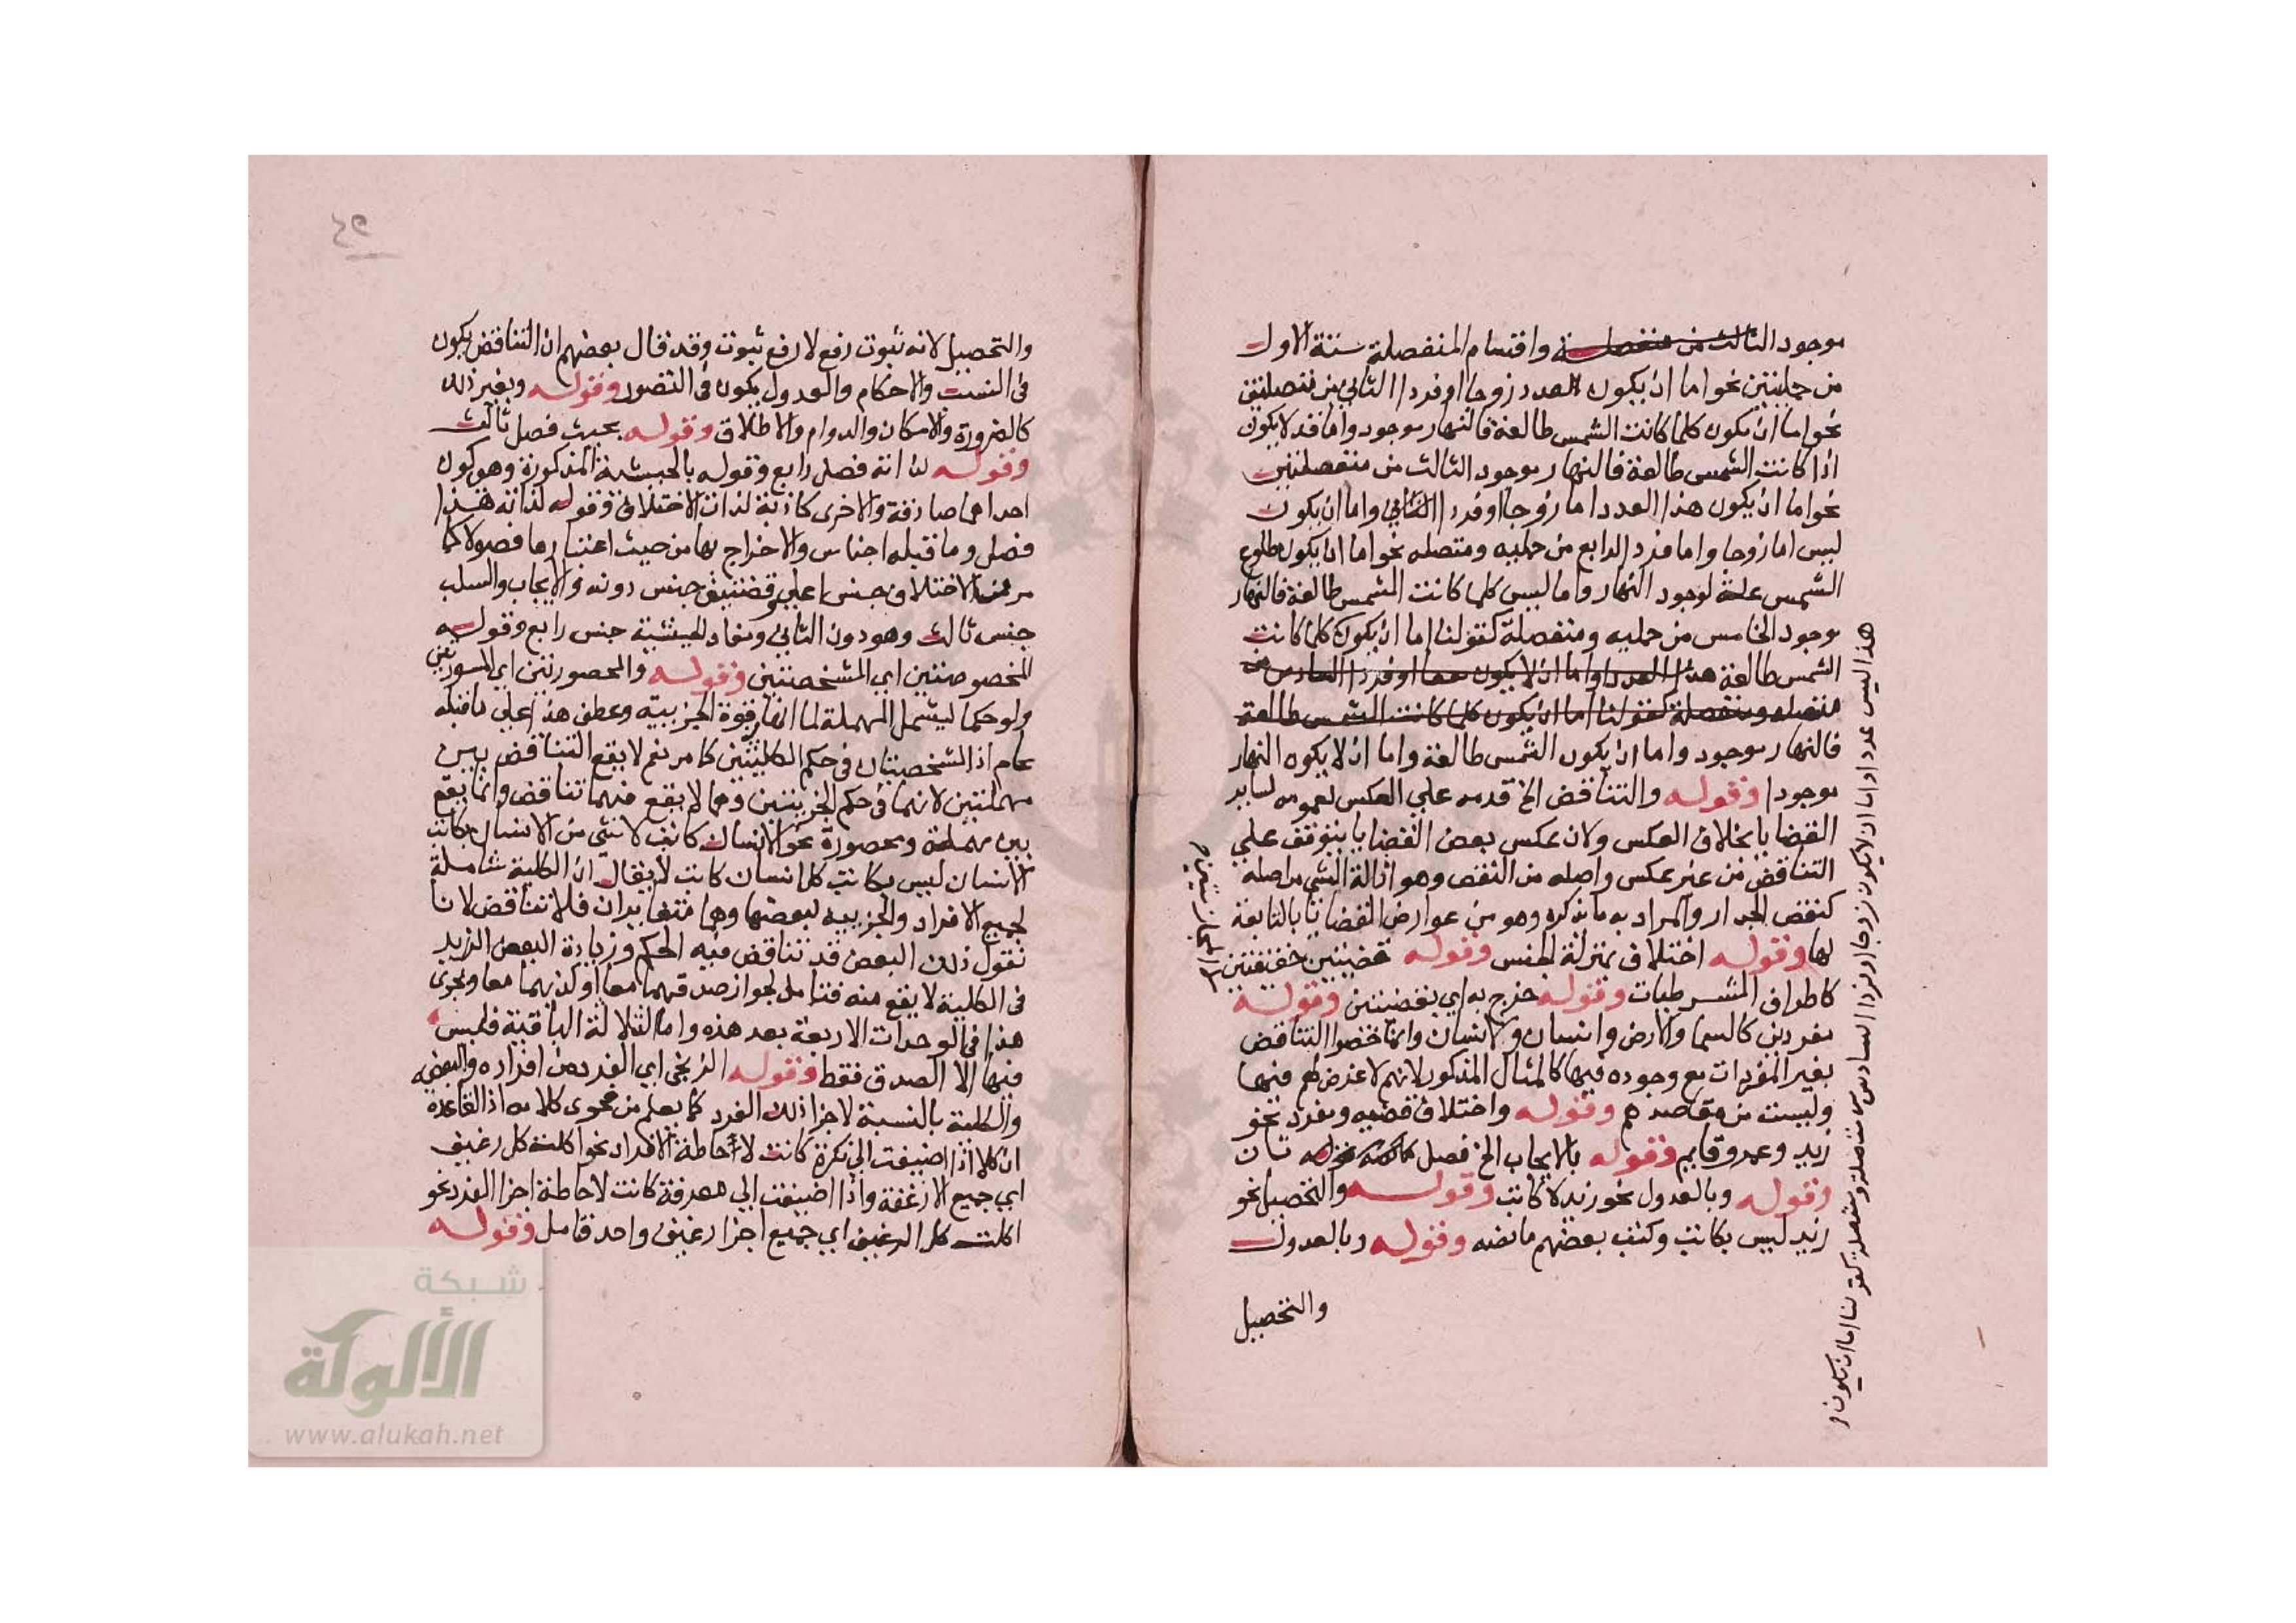 موجود الثالث من منفصلة واقسام المنفصلة ستة الاول
من حمليتين نحو اما ان يكون العدد زوجا او فردا الثاني من متصلتين
نحو اما ان يكون كلما كانت الشمس طالعة فالنهار موجود واما قد لا يكون
اذا كانت الشمس طالعة فالنهار موجود الثالث من منفصلتين
نحو اما ان يكون هذا العدد اما زوجا او فردا الثاني واما ان يكون
ليس اما زوجا واما فردا الرابع من حمليه ومتصله نحو اما ان يكون طلوع
الشمس علة لوجود النهار واما ليس كلما كانت الشمس طالعة فالنهار
موجود الخامس من حمليه ومنفصلة كقولنا اما ان يكون كلما كانت
الشمس طالعة هذا العدد واما ان لا يكون او فردا السادس من
متصله ومنفصلة كقولنا اما ان يكون كلما كانت الشمس طالعة
فالنهار موجود واما ان يكون الشمس طالعة واما ان لا يكون النهار
موجودا وقوله والتناقض الخ قدمه علي العكس لعمومه لساير
القضايا بخلاف العكس ولان عكس بعض القضايا يتوقف علي
التناقض من غير عكس واصله من النقض وهو ازالة الشي من اصله
كنقض الجدار والمراد به ما يذكره وهو من عوارض القضايا بالتابعة
لها وقوله اختلاف بمنزلة الجنس وقوله قضيتين حقيقتين
كاطراف الشرطيات وقوله خرج به اي بقضيتين وقوله
مفردين كالسما والارض وانسان ولا انسان وانما خصوا التناقض
بغير المفردات مع وجوده فيها كالمثال المذكور لانهم لا غرض لهم فيها
وليست من مقاصدهم وقوله واختلاف قضيه ومفرد نحو
زيد وعمرو قايم وقوله بالايجاب الخ فصل ثان
وقوله وبالعدول نحو زيد لا كاتب وقوله والتحصيل نحو
زيد ليس بكاتب وكتب بعضهم ما نصه وقوله وبالعدول
والتحصيل
هذا ليس عدد او اما ان لا يكون زوجا او فردا السادس من متصلة ومنفصلة كقولنا اما ان يكون
٤٩
والتحصيل لانه ثبوت رفع لا رفع ثبوت وقد قال بعضهم ان التناقض يكون
في النسب والاحكام والعدول يكون في التصور وقوله وبغير ذلك
كالضرورة والامكان والدوام والاطلاق وقوله بحيث فصل ثالث
وقوله لذاته فصل رابع وقوله بالحيثية المذكورة وهو كون
احداهما صادقة والاخرى كاذبة لذات الاختلاف وقوله لذاته هذا
فصل وما قبله اجناس والاخراج بها من حيث اعتبارها فصولا كما
مر الاختلاف جنس اعلي وقضيتين جنس دونه والايجاب والسلب
جنس ثالث وهو دون الثاني ومفاد الحيثية جنس رابع وقوله
المخصوصتين اي المشخصتين وقوله والمحصورتين اي المسورتين
ولو حكما ليشمل المهملة لما انها في قوة الجزييه وعطف هذا علي ما قبله
عام اذ الشخصيتان في حكم الكليتين كما مر نعم لا يقع التناقض بين
مهملتين لانهما في حكم الجزييتين وهما لا يقع فيهما تناقض وانما يقع
بين مهملة ومحصورة نحو الانسان كاتب لا شي من الانسان بكاتب
الانسان ليس بكاتب كل انسان كاتب لا يقال ان الكلية شاملة
لجميع الافراد والجزييه لبعضها وهما متغايران فلا تناقض لانا
نقول ذلك البعض قد تناقض فيه الحكم وزيادة البعض الزيد
في الكلية لا يقع منه فتامل لجواز صدقهما معا او كذبهما معا ويجري
هذا في الوحدات الاربعة بعد هذه واما الثلاثة الباقية فليس
فيها الا الصدق فقط وقوله الزنجي اي الفرد من افراده والبعضيه
والكلية بالنسبة لاجزا ذلك الفرد كما يعلم من فحوى كلامه اذ القاعدة
ان كلا اذا اضيفت الي نكرة كانت لاحاطة الافراد نحو اكلت كل رغيف
اي جميع الارغفة واذا اضيفت الي معرفة كانت لاحاطة اجزا الفرد نحو
اكلت كل الرغيف اي جميع اجزا رغيف واحد فامل وقوله
شبكة
الألوكة
www.alukah.net